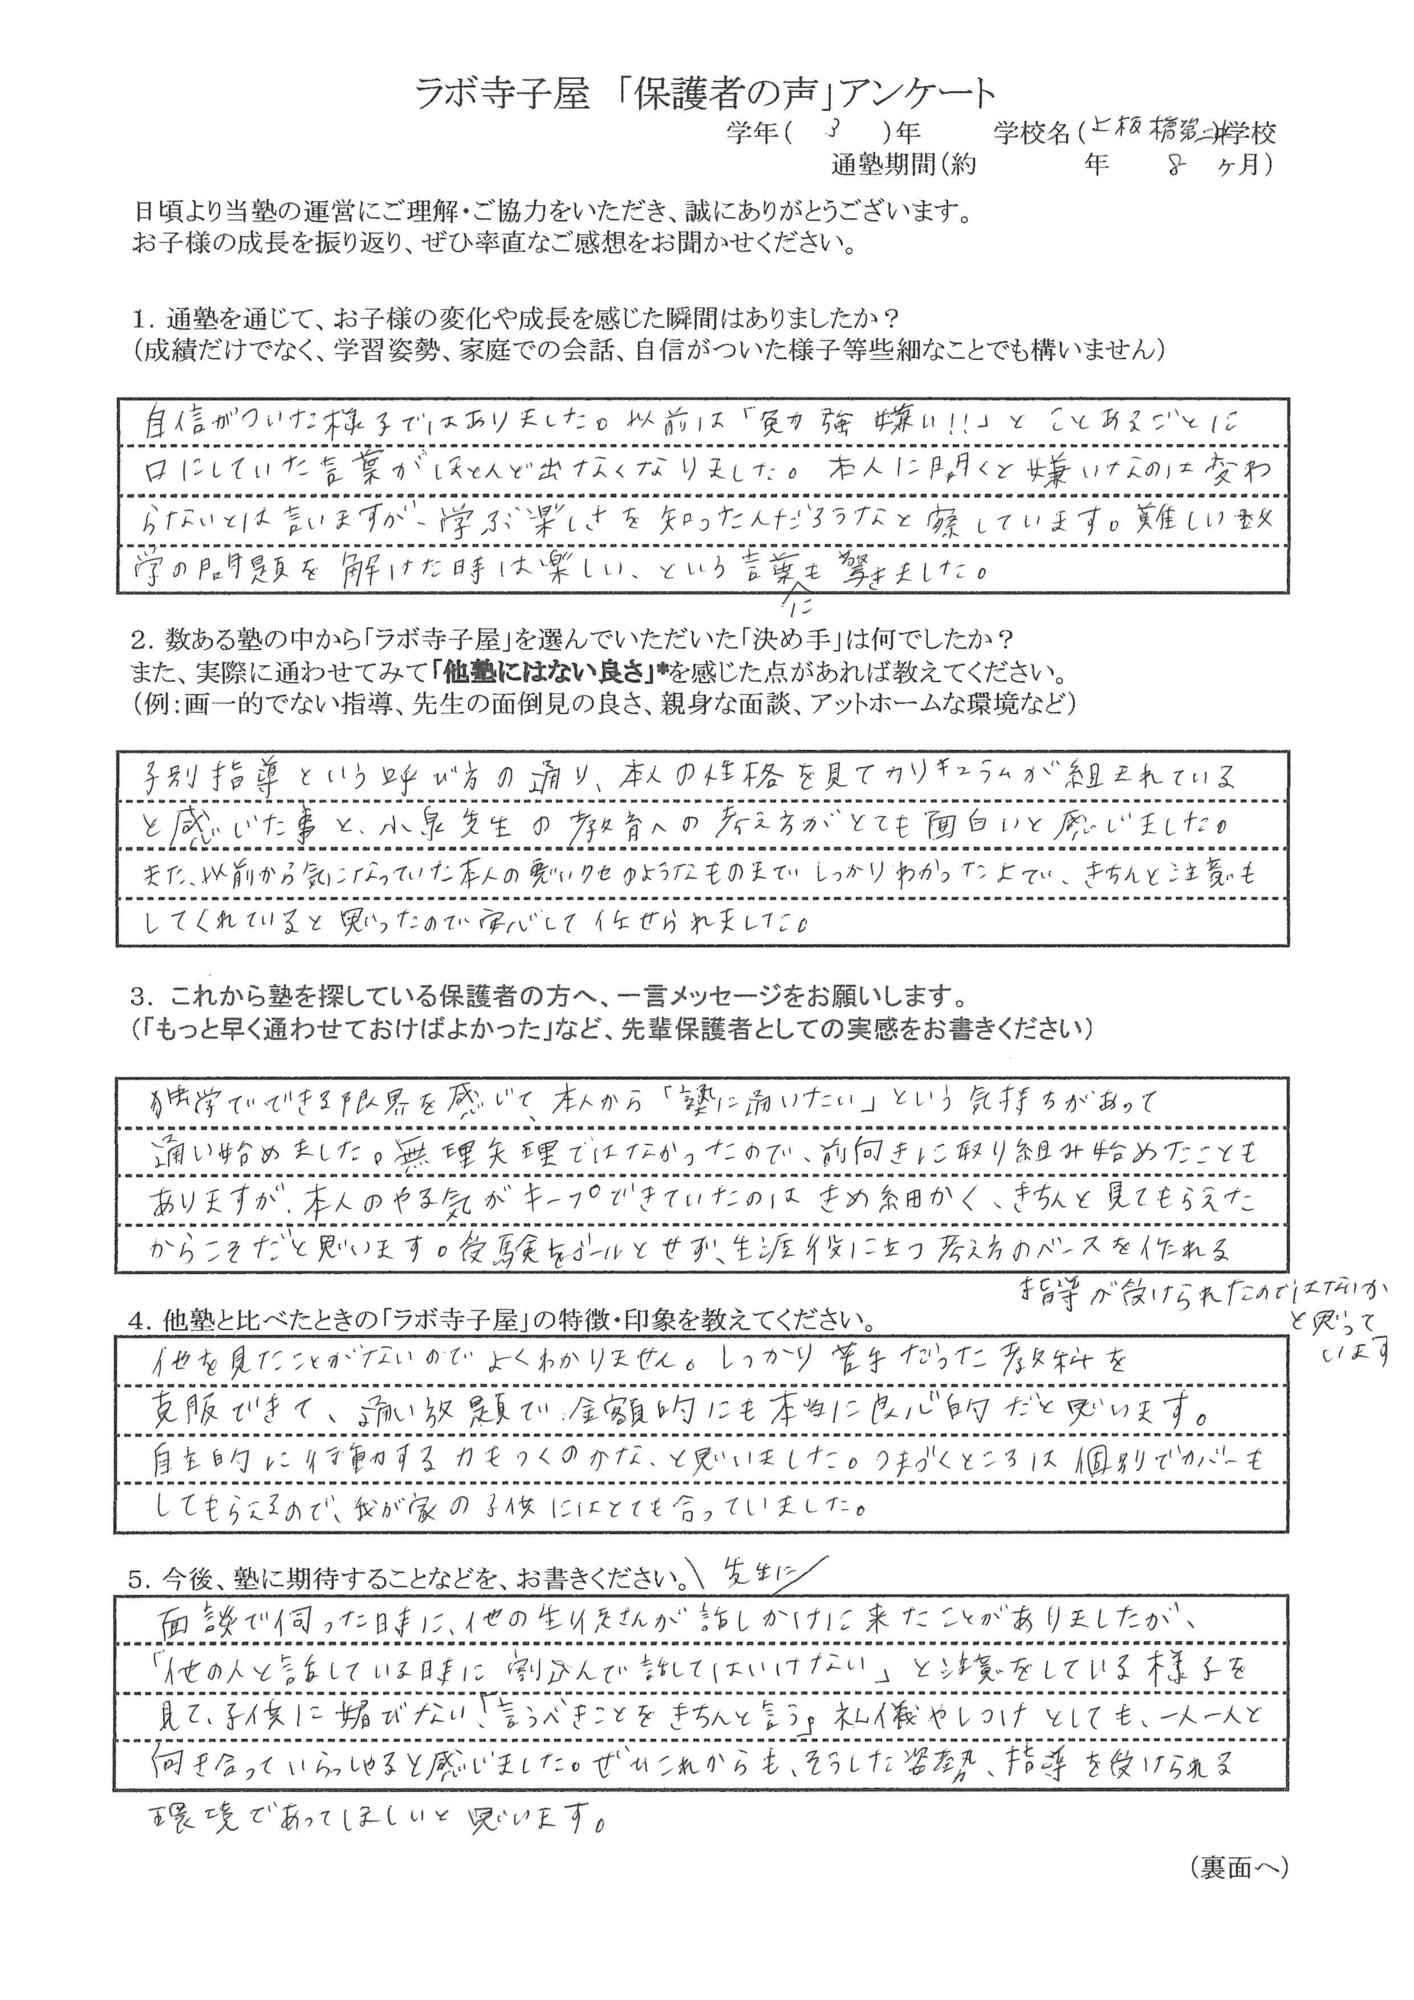 ラボ寺子屋 「保護者の声」アンケート
学年( 3 )年 学校名(上板橋第二中学校
通塾期間(約 年 8 ヶ月)
日頃より当塾の運営にご理解・ご協力をいただき、誠にありがとうございます。
お子様の成長を振り返り、ぜひ率直なご感想をお聞かせください。
1. 通塾を通じて、お子様の変化や成長を感じた瞬間はありましたか?
(成績だけでなく、学習姿勢、家庭での会話、自信がついた様子等些細なことでも構いません)
自信がついた様子ではありました。以前は「勉強嫌い!!」とことあるごとに
口にしていた言葉がほとんど出なくなりました。本人に聞くと嫌いなのは変わ
らないとは言いますが、学ぶ楽しさを知ったんだろうなと察しています。難しい数
学の問題を解けた時は楽しい、という言葉も驚きました。
に
2. 数ある塾の中から「ラボ寺子屋」を選んでいただいた「決め手」は何でしたか?
また、実際に通わせてみて「他塾にはない良さ」*を感じた点があれば教えてください。
(例:画一的でない指導、先生の面倒見の良さ、親身な面談、アットホームな環境など)
子別指導という呼び方の通り、本人の性格を見てカリキュラムが組まれている
と感じた事と、小泉先生の教育への考え方がとても面白いと感じました。
また、以前から気になっていた本人の悪いクセのようなものまでしっかりわかった上で、きちんと注意も
してくれていると思ったので安心して任せられました。
3. これから塾を探している保護者の方へ、一言メッセージをお願いします。
(「もっと早く通わせておけばよかった」など、先輩保護者としての実感をお書きください)
独学でできる限界を感じて、本人から「塾に通いたい」という気持ちがあって
通い始めました。無理矢理ではなかったので、前向きに取り組み始めたことも
ありますが、本人のやる気がキープできていたのはきめ細かく、きちんと見てもらえた
からこそだと思います。受験をゴールとせず、生涯役に立つ考え方のベースを作れる
指導が受けられたのではないか
と思って
います
4. 他塾と比べたときの「ラボ寺子屋」の特徴・印象を教えてください。
他を見たことがないのでよくわかりません。しっかり苦手だった教科を
克服できて、通い放題で金額的にも本当に良心的だと思います。
自主的に行動する力もつくのかな、と思いました。つまづくところは個別でカバーも
してもらえるので、我が家の子供にはとても合っていました。
5. 今後、塾に期待することなどを、お書きください。 先生に
面談で伺った時に、他の生徒さんが話しかけに来たことがありましたが、
「他の人と話している時に割込んで話してはいけない」と注意をしている様子を
見て、子供に媚びない、「言うべきことをきちんと言う」礼儀やしつけとしても、一人一人と
向き合っていらっしゃると感じました。ぜひこれからも、そうした姿勢、指導を受けられる
環境であってほしいと思います。
(裏面へ)